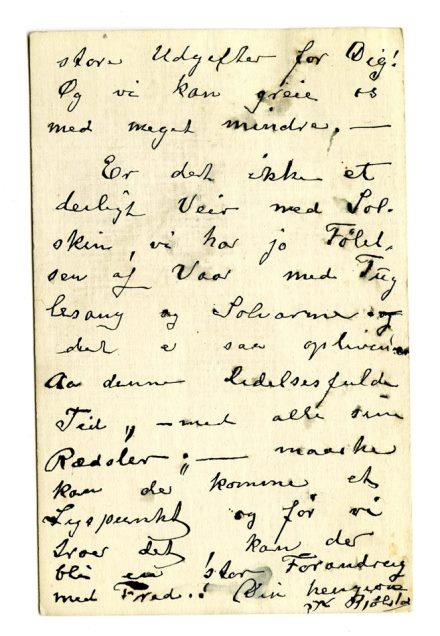 store Udgifter for Dig!
Og vi kan greie os
med meget mindre, —
Er det ikke et
deiligt Veir med Sol-
skin, vi har jo Følel-
sen af Vaar med Fug
lesang og Solvarme og
det er saa oplivende
Aa denne lidelsesfulde
Tid „ — med alle sine
Rædsler „ — maaske
kan de komme et
Lyspunkt og før vi
troer det, kan der
bli en stor Forandring
med Fred.! Din hengivne